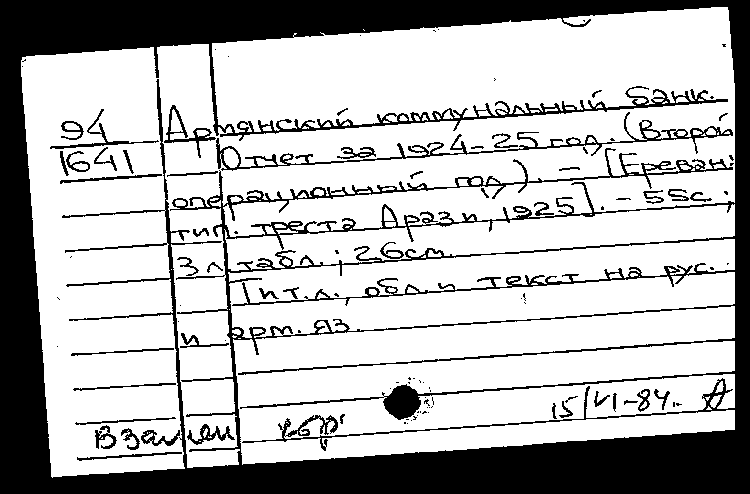 94 Армянский коммунальный банк.
1641 Отчет за 1924-25 год. (Второй
операционный год). – [Ереван:
тип. треста Арази, 1925]. – 55с.;
3 л. табл.; 26см.
Тит. л., обл. и текст на рус.
и арм. яз.
Взамен 15/VI-84.